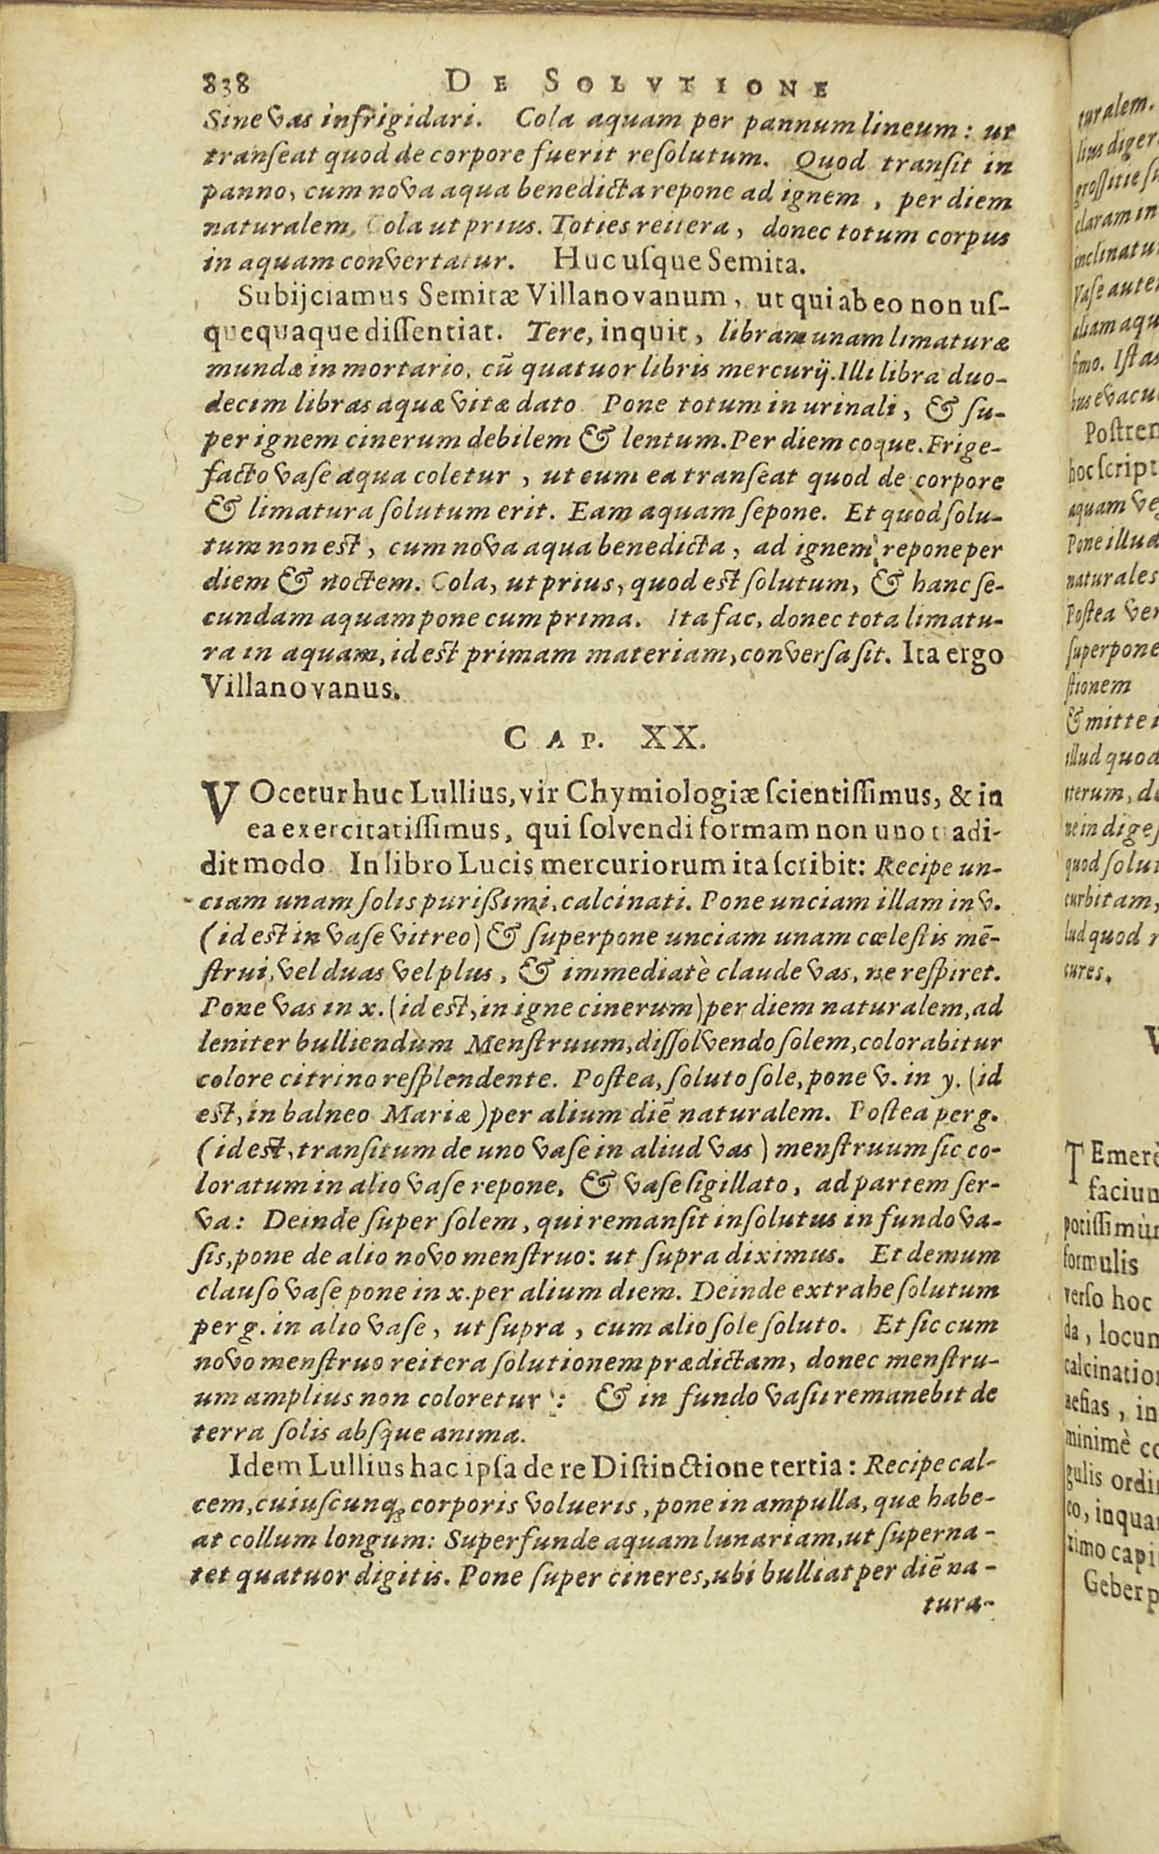 838 DE SOLVTIONE
Sine vas infrigidari. Cola aquam per pannum lineum: ut
transeat quod de corpore fuerit resolutum. Quod transit in
panno, cum nova aqua benedicta repone ad ignem, per diem
naturalem. Cola ut prius. Toties reitera, donec totum corpus
in aquam convertatur. Huc usque Semita.
Subijciamus Semitæ Villanovanum, ut qui ab eo non us-
quequaque dissentiat. Tere, inquit, libram unam limaturæ
mundæ in mortario, cū quatuor libris mercurij. Illi libra duo-
decim libras aquæ vitæ dato Pone totum in urinali, & su-
per ignem cinerum debilem & lentum. Per diem coque. Frige-
facto vase aqua coletur, ut cum ea transeat quod de corpore
& limatura solutum erit. Eam aquam sepone. Et quod solu-
tum non est, cum nova aqua benedicta, ad ignem repone per
diem & noctem. Cola, ut prius, quod est solutum, & hanc se-
cundam aquam pone cum prima. Ita fac, donec tota limatu-
ra in aquam, id est primam materiam, conversa sit. Ita ergo
Villanovanus.
CAP. XX.
VOcetur huc Lullius, vir Chymiologiæ scientissimus, & in
ea exercitatissimus, qui solvendi formam non uno tradi-
dit modo In libro Lucis mercuriorum ita scribit: Recipe un-
ciam unam solis purissimi, calcinati. Pone unciam illam in v.
(id est in vase vitreo) & superpone unciam unam cœlestis mē-
strui, vel duas vel plus, & immediatè claude vas, ne respiret.
Pone vas in x. (id est, in igne cinerum) per diem naturalem, ad
leniter bulliendùm Menstruum, dissolvendo solem, colorabitur
colore citrino resplendente. Postea, soluto sole, pone v. in y. (id
est, in balneo Mariæ) per alium diē naturalem. Postea per g.
(id est, transitum de uno vase in aliud vas) menstruum sic co-
loratum in alio vase repone, & vase sigillato, ad partem ser-
va: Deinde super solem, qui remansit insolutus in fundo va-
sis, pone de alio novo menstruo: ut supra diximus. Et demum
clauso vase pone in x. per alium diem. Deinde extrahe solutum
per g. in alio vase, ut supra, cum alio sole soluto. Et sic cum
novo menstruo reitera solutionem prædictam, donec menstru-
um amplius non coloretur: & in fundo vasis remanebit de
terra solis absque anima.
Idem Lullius hac ipsa de re Distinctione tertia: Recipe cal-
cem, cuiuscunq; corporis volueris, pone in ampulla, quæ habe-
at collum longum: Superfunde aquam lunariam, ut superna-
tet quatuor digitis. Pone super cineres, ubi bulliat per diē na-
tura-
turalem.
lius diger
grossitie su
claram in
inclinatu
Vase aute
aliam aqu
fimo. Istas
hus evacu
Postrem
hoc script
aquam ve
Pone illud
naturales
Postea ver
superpone
stionem
& mitte i
illud quod
iterum, d
ne in diges
quod solu
curbitam,
lud quod r
cures.
V
TEmerè
faciun
potissimùm
formulis
verso hoc
da, locum
calcination
, in
minimè co
gulis ordi
co, inquam
timo capi
Geber p